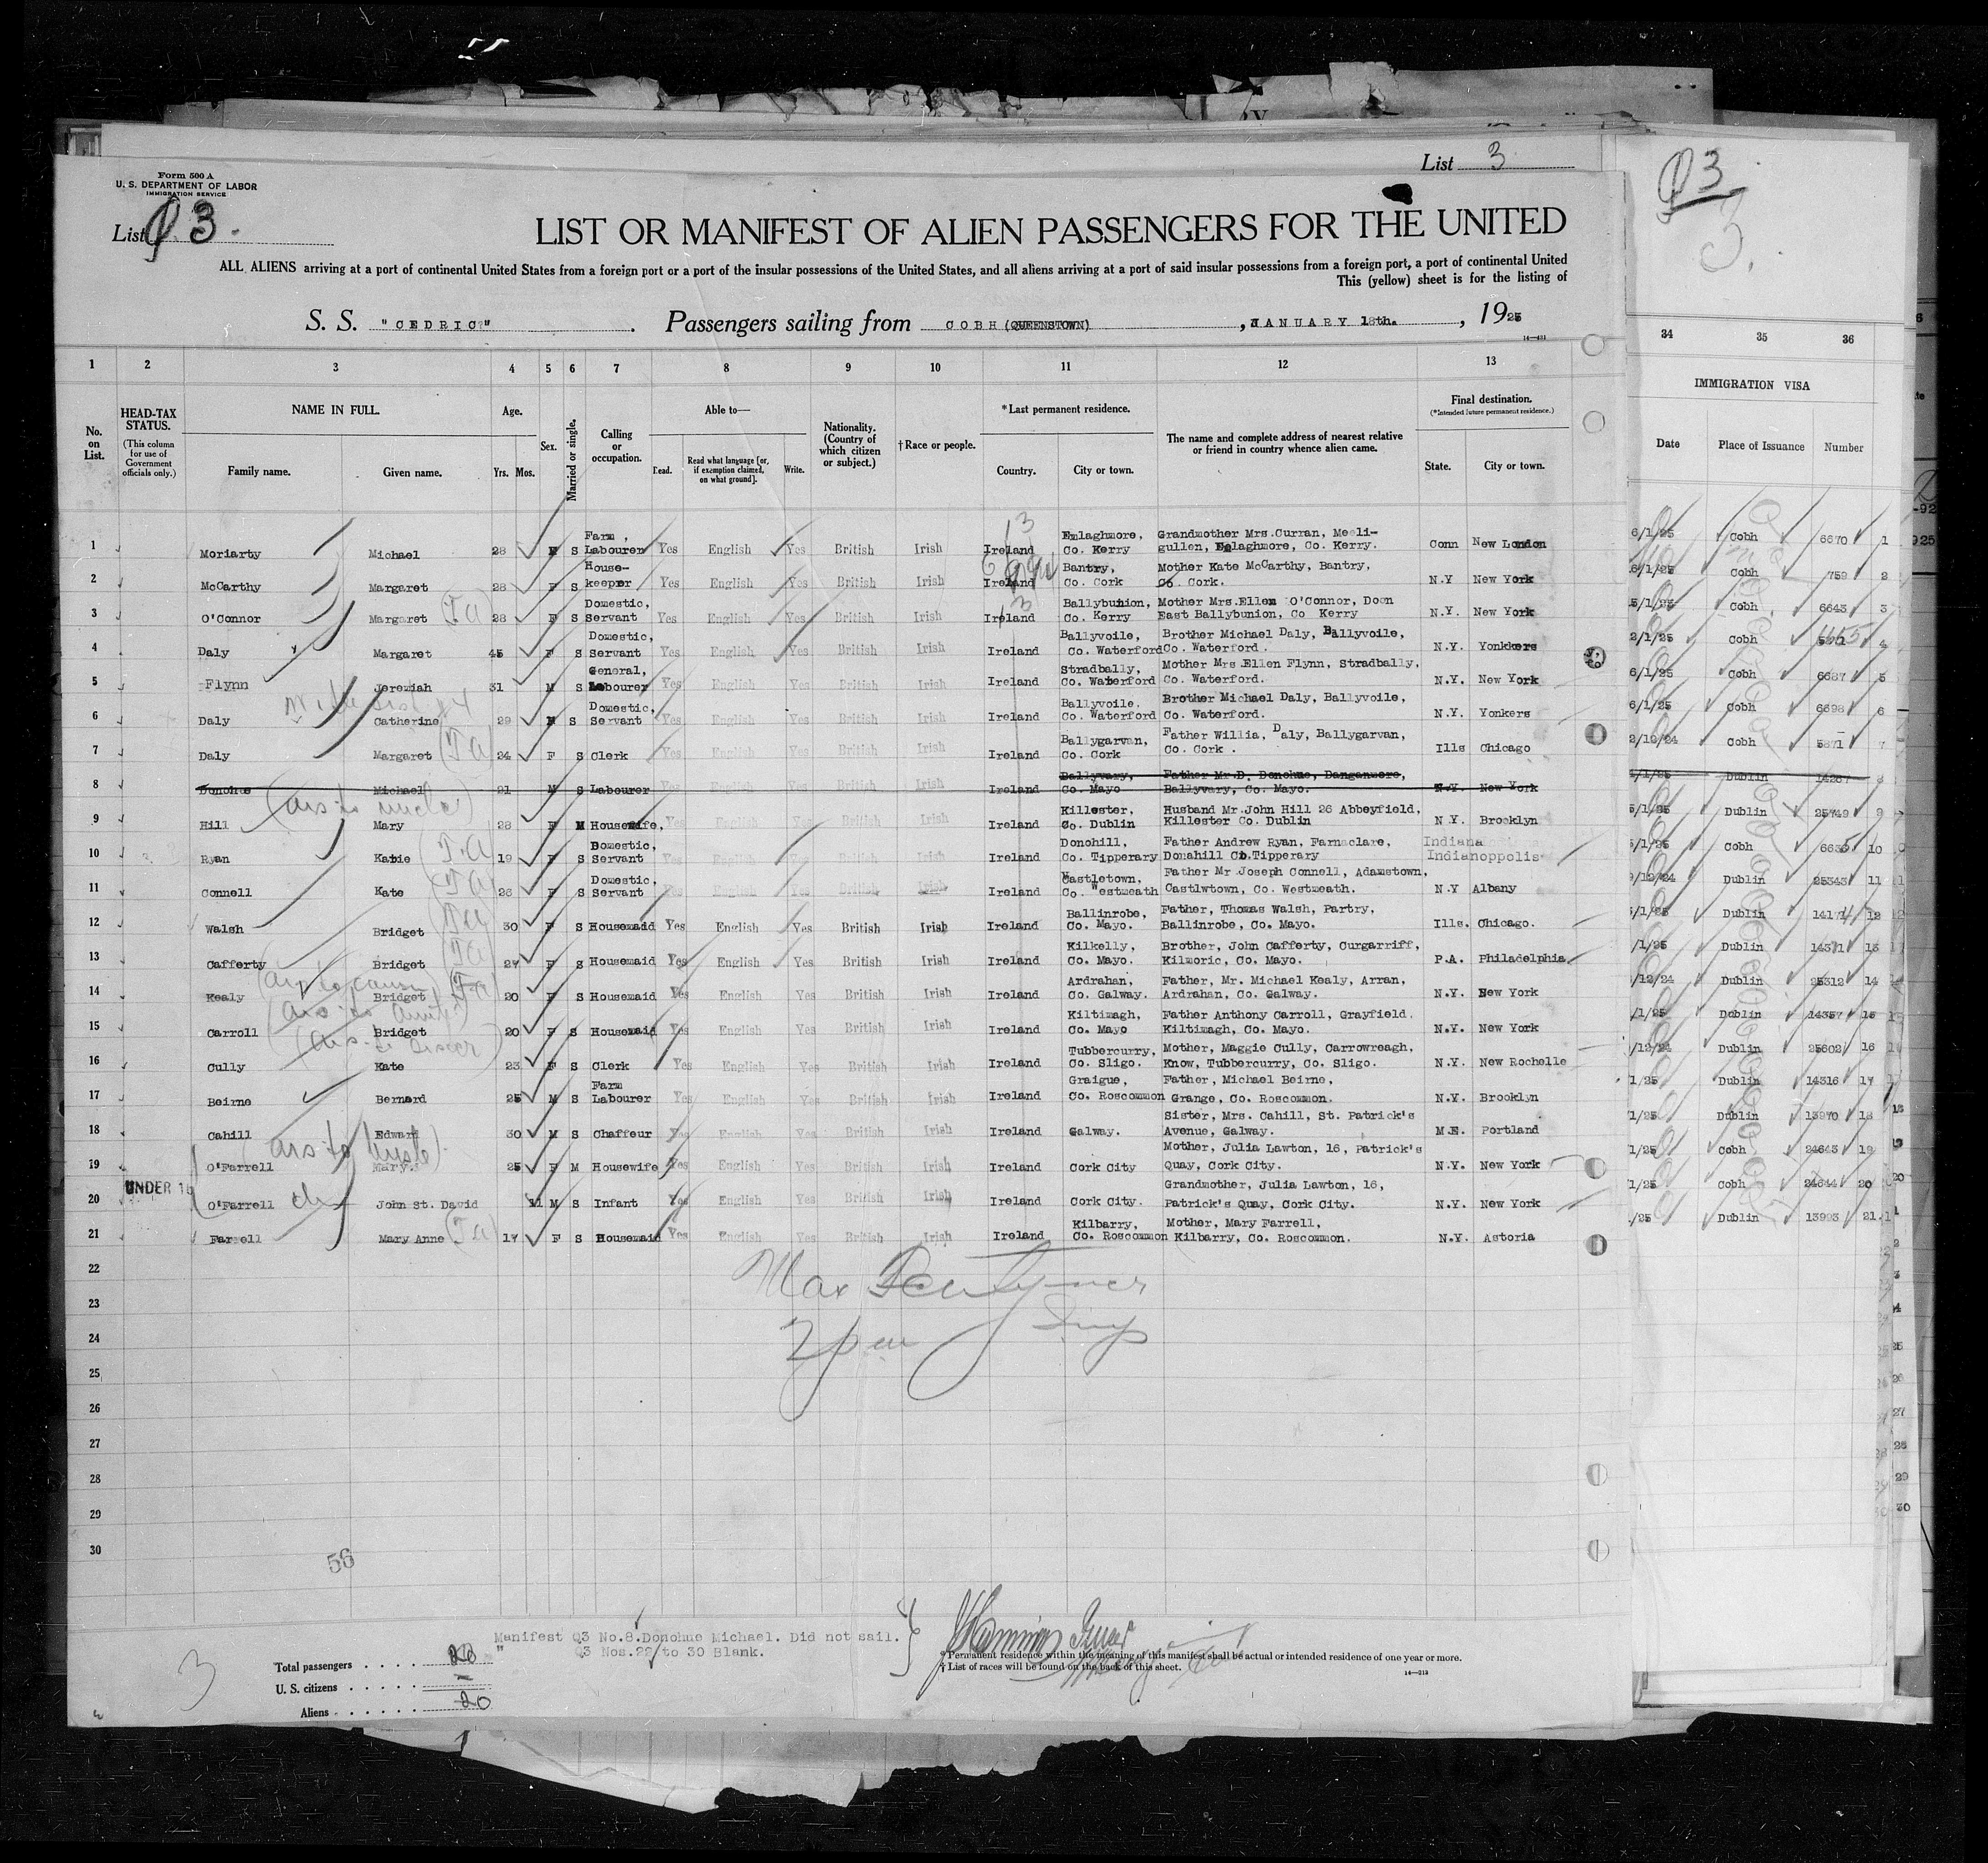 List 3
Form 500 A
U. S. DEPARTMENT OF LABOR
IMMIGRATION SERVICE
List Q 3.
LIST OR MANIFEST OF ALIEN PASSENGERS FOR THE UNITED
ALL ALIENS arriving at a port of continental United States from a foreign port or a port of the insular possessions of the United States, and all aliens arriving at a port of said insular possessions from a foreign port, a port of continental United
This (yellow) sheet is for the listing of
S. S. "CEDRIC" . Passengers sailing from COBH (QUEENSTOWN) , JANUARY 18th. , 1925
14—421
1 2 3 4 5 6 7 8 9 10 11 12 13
No. on List.
HEAD-TAX STATUS.
(This column for use of Government officials only.)
NAME IN FULL.
Family name. Given name.
Age.
Yrs. Mos.
Sex.
Married or single.
Calling or occupation.
Able to—
Read. Read what language [or, if exemption claimed, on what ground]. Write.
Nationality. (Country of which citizen or subject.)
† Race or people.
*Last permanent residence.
Country. City or town.
The name and complete address of nearest relative or friend in country whence alien came.
Final destination.
(*Intended future permanent residence.)
State. City or town.
1 Moriarty Michael 28 M S Farm, Labourer Yes English Yes British Irish Ireland Emlaghmore, Co. Kerry Grandmother Mrs. Curran, Meeli-gullen, Emlaghmore, Co. Kerry. Conn New London
2 McCarthy Margaret 28 F S House-keeper Yes English Yes British Irish Ireland Bantry, Co. Cork Mother Kate McCarthy, Bantry, Co. Cork. N.Y New York
3 O'Connor Margaret 28 F S Domestic, Servant Yes English Yes British Irish Ireland Ballybunion, Co. Kerry Mother Mrs. Ellen O'Connor, Doon East Ballybunion, Co Kerry N.Y. New York
4 Daly Margaret 45 F S Domestic, Servant Yes English Yes British Irish Ireland Ballyvoile, Co. Waterford Brother Michael Daly, Ballyvoile, Co. Waterford. N.Y. Yonkkers
5 Flynn Jeremiah 31 M S General, Labourer Yes English Yes British Irish Ireland Stradbally, Co. Waterford Mother Mrs Ellen Flynn, Stradbally, Co. Waterford. N.Y. New York
6 Daly Catherine 29 S Domestic, Servant Yes English Yes British Irish Ireland Ballyvoile. Co. Waterford Brother Michael Daly, Ballyvoile, Co. Waterford. N.Y. Yonkers
7 Daly Margaret 24 F S Clerk Yes English Yes British Irish Ireland Ballygarvan, Co. Cork Father Willia, Daly, Ballygarvan, Co. Cork . Ills Chicago
8 Donohue Michael 21 M S Labourer Ireland Ballyvary, Co. Mayo Father Mr. D. Donohue, Danganmore, Ballyvary, Co. Mayo. N.Y. New York
9 Hill Mary 28 F M Housewife, Yes English Yes British Irish Ireland Killester, Co. Dublin Husband Mr John Hill 26 Abbeyfield, Killester Co. Dublin N.Y. Brooklyn
10 Ryan Katie 19 F S Domestic, Servant Yes English Yes British Irish Ireland Donohill, Co. Tipperary Father Andrew Ryan, Farnaclare, Donahill Co. Tipperary Indiana Indianoppolis
11 Connell Kate 26 F S Domestic, Servant Yes English Yes British Irish Ireland Castletown, Co. Westmeath Father Mr Joseph Connell, Adamstown, Castlwtown, Co. Westmeath. N.Y Albany
12 Walsh Bridget 30 F S Housemaid Yes English Yes British Irish Ireland Ballinrobe, Co. Mayo. Father, Thomas Walsh, Partry, Ballinrobe, Co. Mayo. Ills. Chicago.
13 Cafferty Bridget 27 F S Housemaid Yes English Yes British Irish Ireland Kilkelly, Co. Mayo. Brother, John Cafferty, Curgarriff, Kilmoric, Co. Mayo. P.A. Philadelphia
14 Kealy Bridget 20 F S Housemaid Yes English Yes British Irish Ireland Ardrahan, Co. Galway. Father, Mr. Michael Kealy, Arran, Ardrahan, Co. Galway. N.Y. New York
15 Carroll Bridget 20 F S Housemaid Yes English Yes British Irish Ireland Kiltimagh, Co. Mayo Father Anthony Carroll, Grayfield. Kiltimagh, Co. Mayo. N.Y. New York
16 Cully Kate 23 F S Clerk Yes English Yes British Irish Ireland Tubbercurry, Co. Sligo. Mother, Maggie Cully, Carrowreagh, Know, Tubbercurry, Co. Sligo. N.Y. New Rochelle
17 Beirne Bernard 25 M S Farm Labourer Yes English Yes British Irish Ireland Graigue, Co. Roscommon Father, Michael Beirne, Grange, Co. Roscommon. N.Y. Brooklyn
18 Cahill Edward 30 M S Chaffeur Yes English Yes British Irish Ireland Galway. Sister, Mrs. Cahill, St. Patrick's Avenue, Galway. M.E. Portland
19 O'Farrell Mary. 25 F M Housewife Yes English Yes British Irish Ireland Cork City Mother, Julia Lawton, 16, Patrick's Quay, Cork City. N.Y. New York
20 UNDER 16 O'Farrell John St. David 11 M S Infant Yes English Yes British Irish Ireland Cork City. Grandmother, Julia Lawton, 16, Patrick's Quay, Cork City. N.Y. New York
21 Farrell Mary Anne 17 F S Housemaid Yes English Yes British Irish Ireland Kilbarry, Co. Roscommon Mother, Mary Farrell, Kilbarry, Co. Roscommon. N.Y. Astoria
22
23
24
25
26
27
28
29
30
56
Manifest Q3 No.8. Donohue Michael. Did not sail.
" Q3 Nos. 22 to 30 Blank.
3
Total passengers . . . . 20
U. S. citizens . . . . .
Aliens . . . . . . 20
* Permanent residence within the meaning of this manifest shall be actual or intended residence of one year or more.
† List of races will be found on the back of this sheet.
14—213
Q 3
3.
34 35 36
IMMIGRATION VISA
Date Place of Issuance Number
6/1/25 Cobh 6670 1
6/1/25 Cobh 759 2
5/1/25 Cobh 6643 3
2/1/25 Cobh 4
6/1/25 Cobh 6687 5
6/1/25 Cobh 6698 6
2/12/24 Cobh 5871 7
/1/25 Dublin 14267 8
5/1/25 Dublin 25749 9
5/1/25 Cobh 10
/12/24 Dublin 25343 11
/1/25 Dublin 14174 12
/1/25 Dublin 14371 13
/12/24 Dublin 25312 14
/1/25 Dublin 14357 15
/12/24 Dublin 25602 16
1/25 Dublin 14316 17
1/25 Dublin 13970 18
1/25 Cobh 24643 19
1/25 Cobh 24644 20
/25 Dublin 13993 21